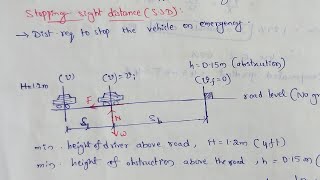 Stopping sight distance (SSD):
→ Dist req to stop the vehicle on emergency.
h = 0.15m (obstruction)
H=1.2m (v) (v)=vi (vf=0)
F
road level (No g
N
S1 S2
W
min. height of driver above road, H = 1.2m (4ft)
min. height of obstruction above the road, h = 0.15m (